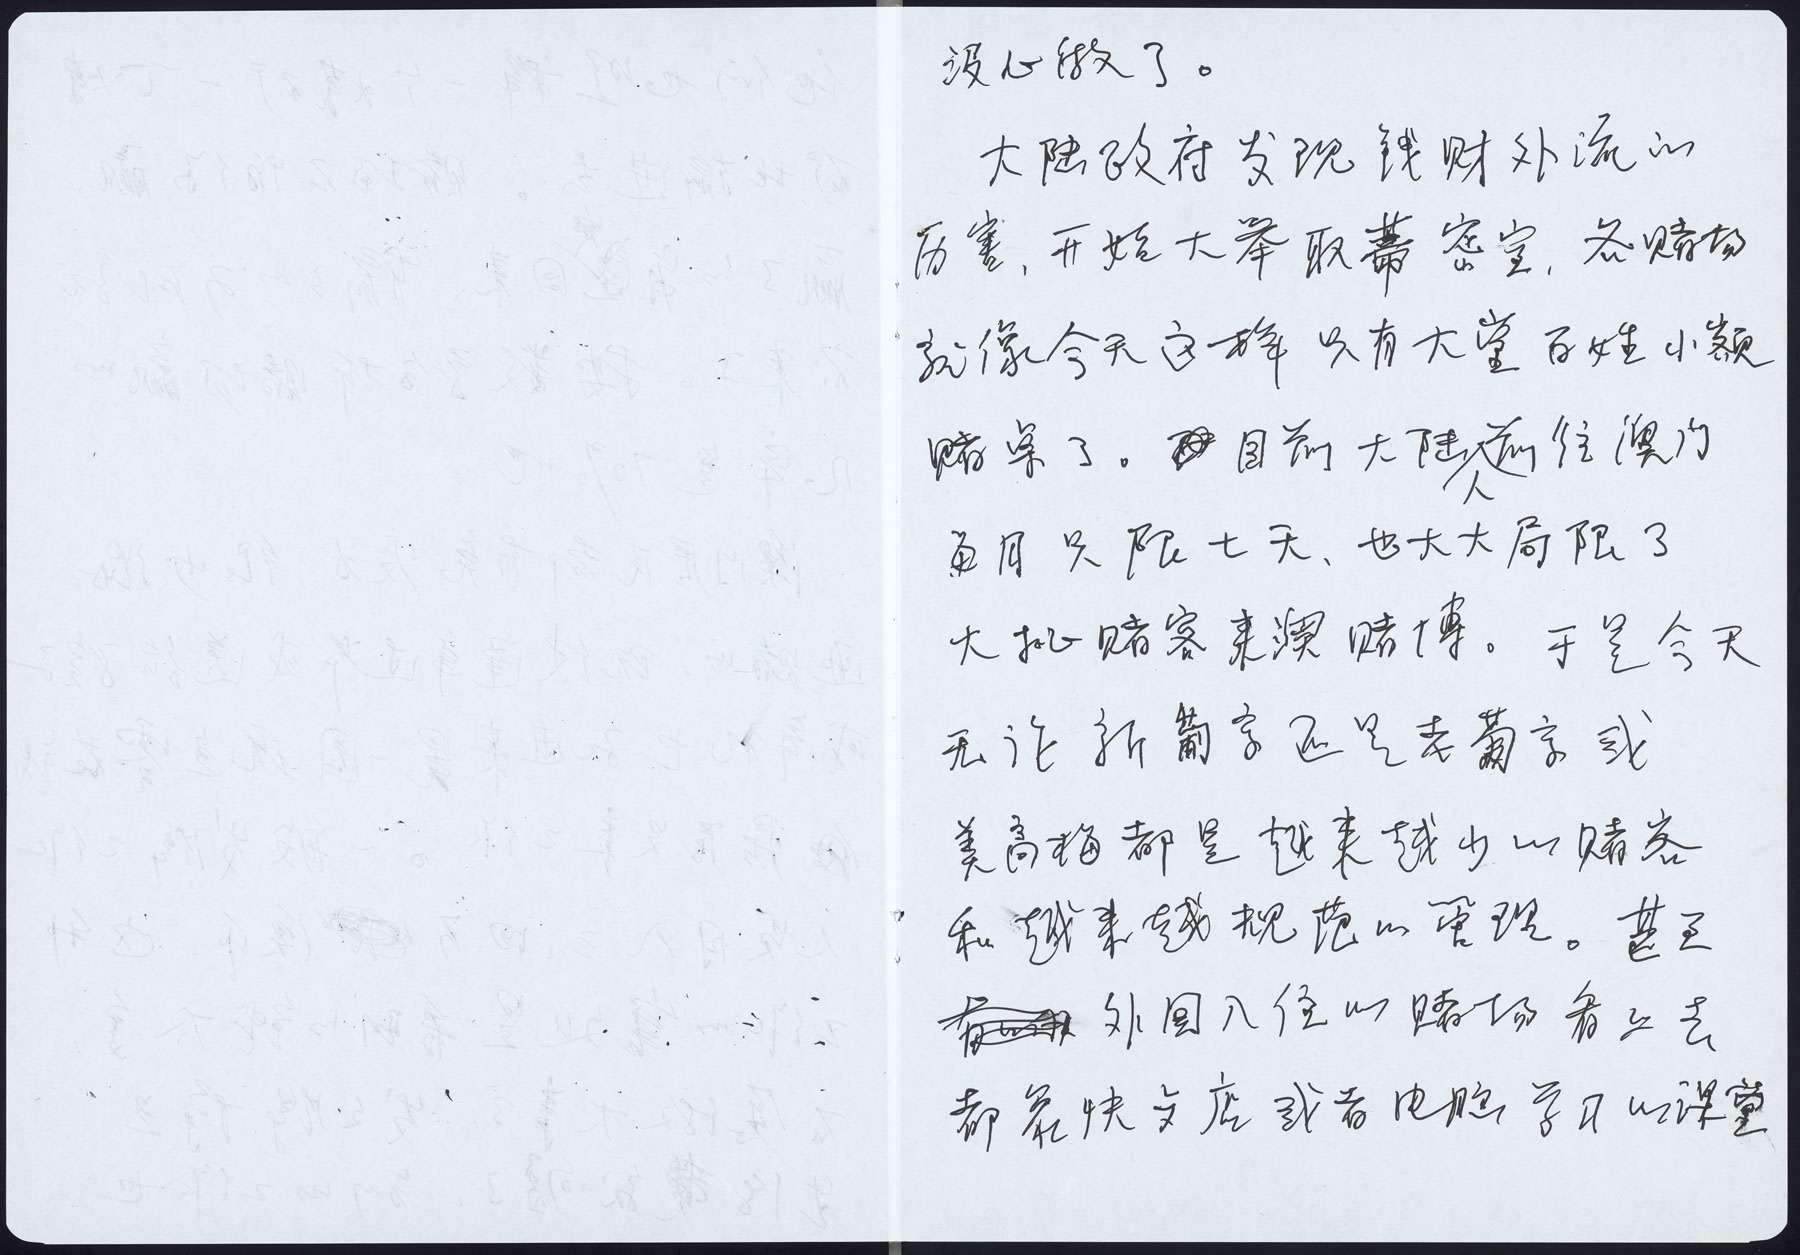 没心做了。
大陆政府发现钱财外流的
厉害，开始大举取蒂密室，各赌场
就像今天这样只有大堂百姓小额
赌桌了。目前大陆人前往澳门
每月只限七天、也大大局限了
大批赌客来澳赌博。于是今天
无论新葡京还是老葡京或
美高梅都是越来越少的赌客
和越来越规范的管理。甚至
外围入住的赌场看上去
都象快文店或者电脑学习的课堂